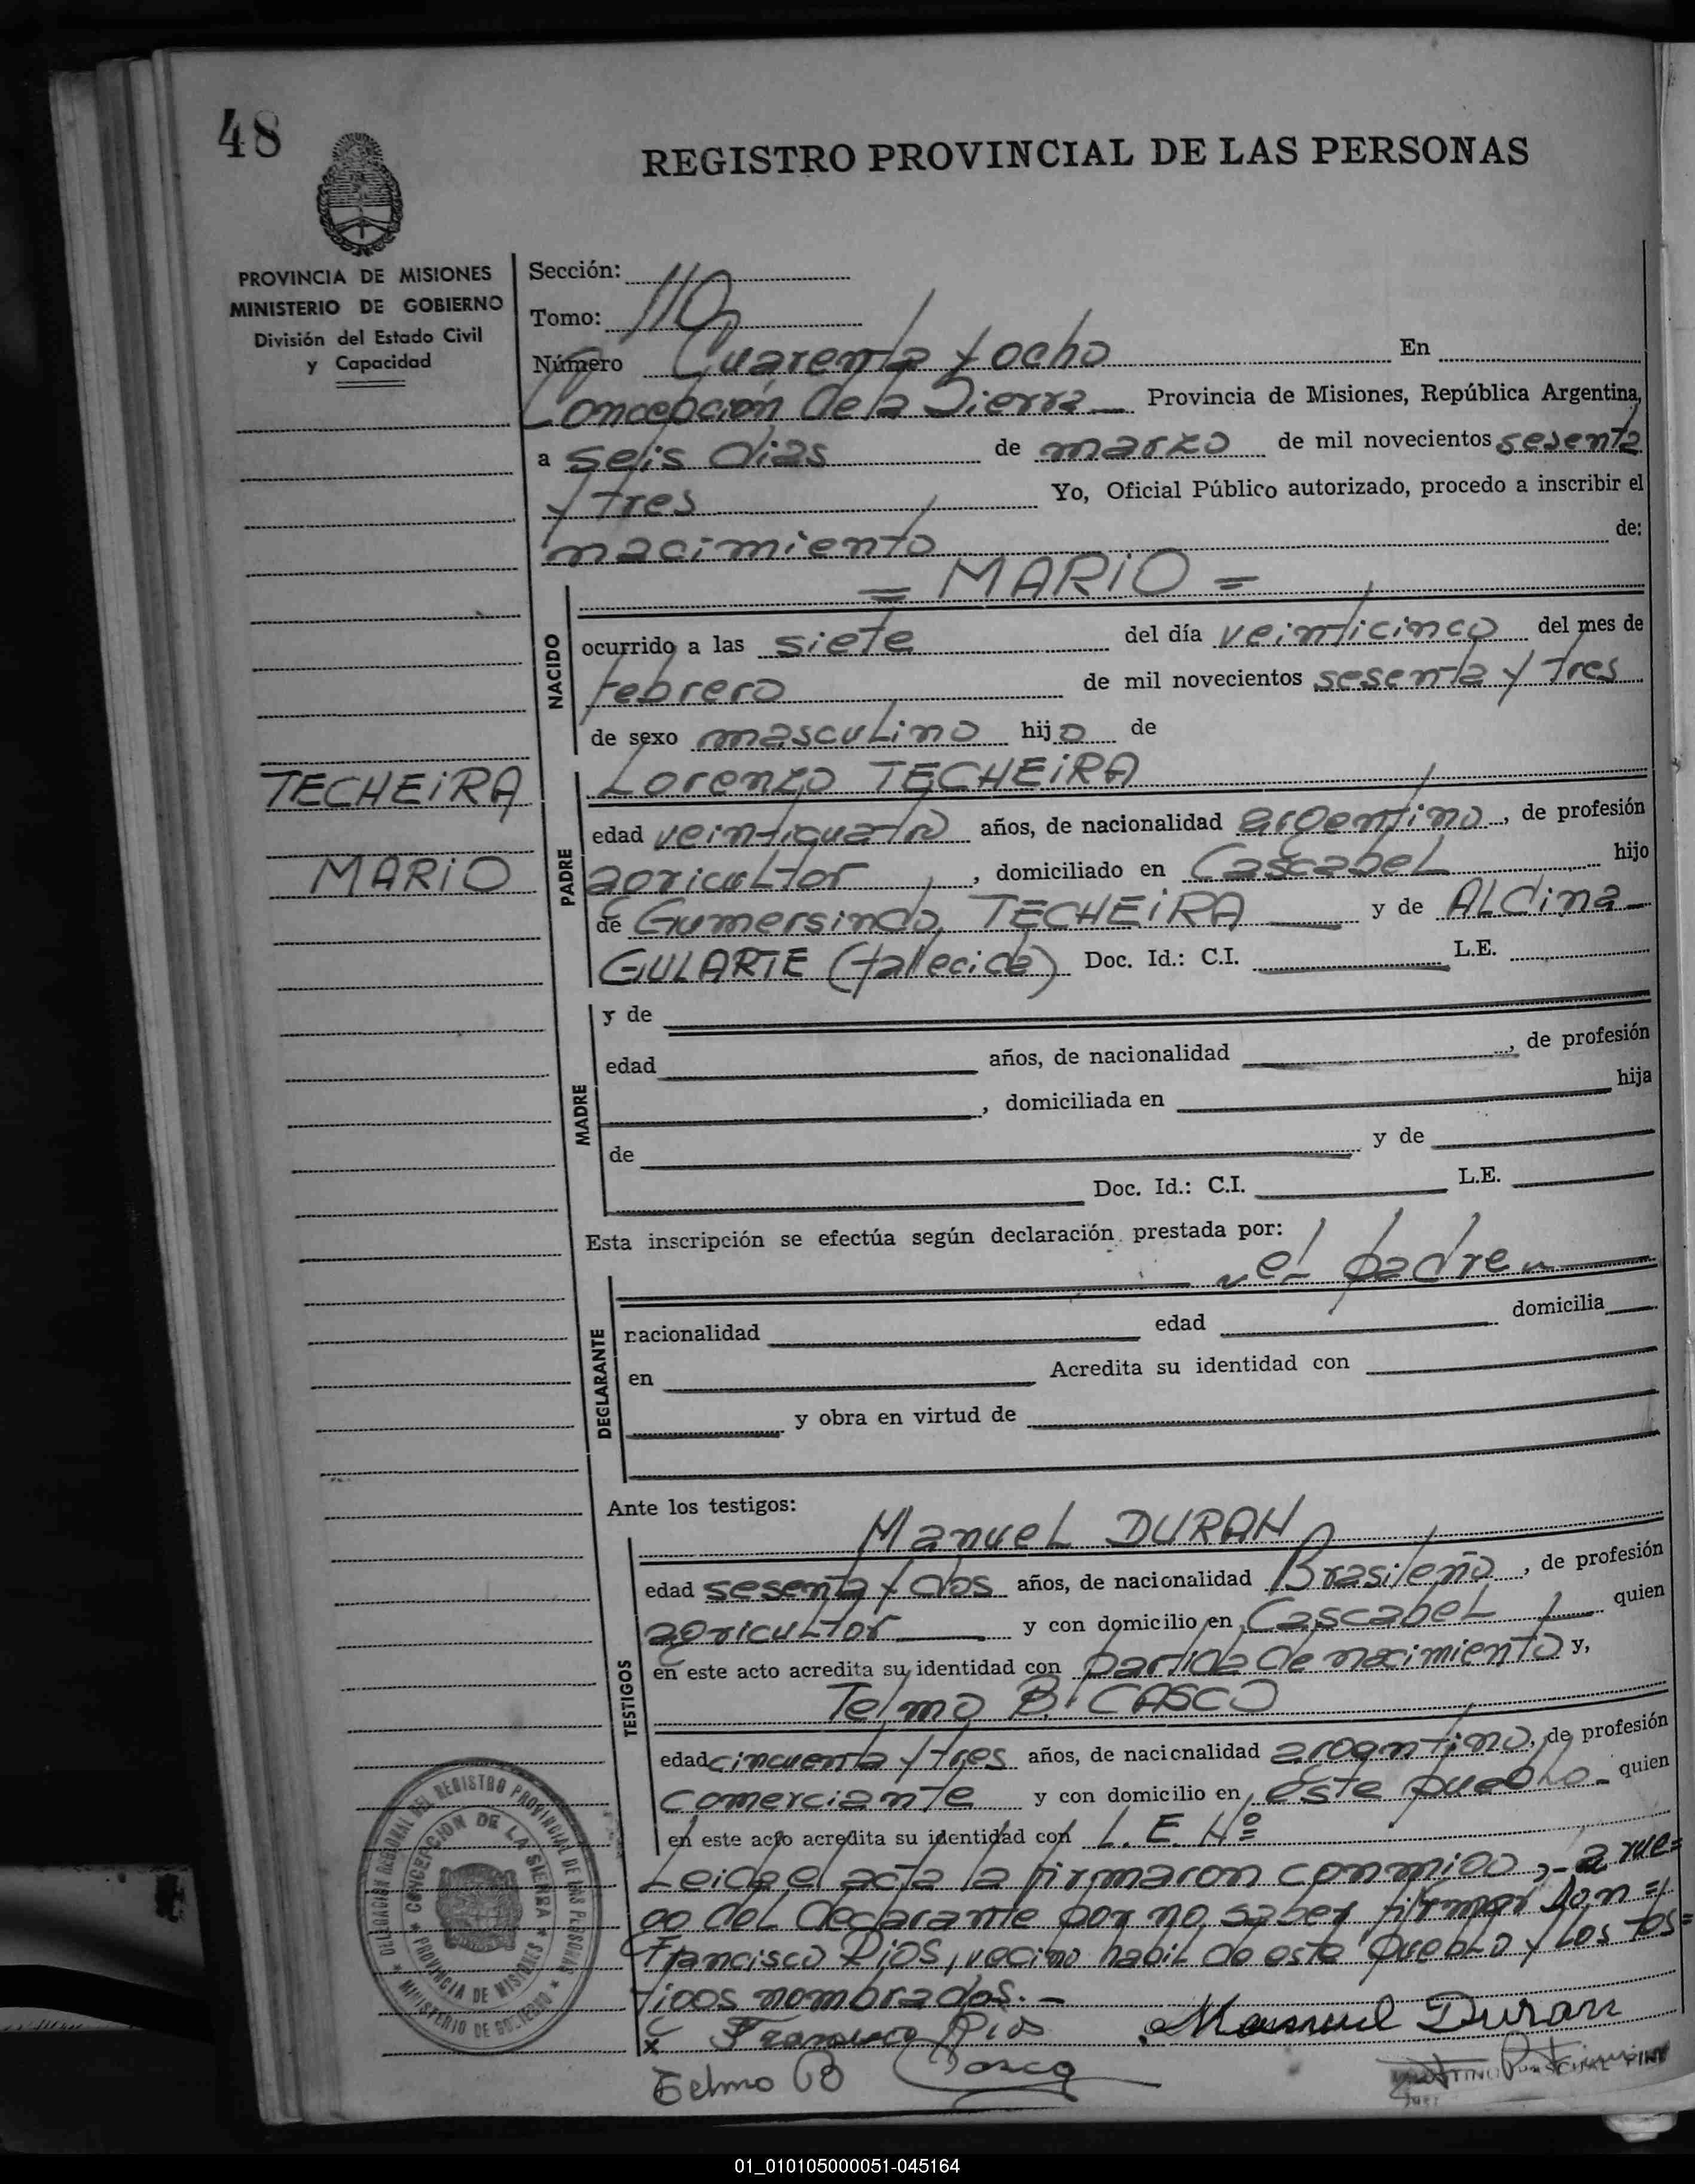 48
REGISTRO PROVINCIAL DE LAS PERSONAS
PROVINCIA DE MISIONES
MINISTERIO DE GOBIERNO
División del Estado Civil
y Capacidad
Sección:
Tomo: 110
Número Cuarenta y ocho En
Concepción de la Sierra Provincia de Misiones, República Argentina,
a seis dias de marzo de mil novecientos sesenta
y tres Yo, Oficial Público autorizado, procedo a inscribir el
nacimiento de:
= MARIO =
NACIDO
ocurrido a las siete del día veinticinco del mes de
febrero de mil novecientos sesenta y tres
de sexo masculino hijo de
TECHEIRA
MARIO
PADRE
Lorenzo TECHEIRA
edad veintiquatro años, de nacionalidad argentino, de profesión
agricultor, domiciliado en Cascabel hijo
de Gumersindo TECHEIRA y de ALcina
GULARTE (fallecida) Doc. Id.: C.I. L.E.
MADRE
y de
edad años, de nacionalidad , de profesión
, domiciliada en hija
de y de
Doc. Id.: C.I. L.E.
Esta inscripción se efectúa según declaración prestada por:
el padre
DECLARANTE
nacionalidad edad domicilia
en Acredita su identidad con
y obra en virtud de
Ante los testigos:
TESTIGOS
Manuel DURAN
edad sesenta y dos años, de nacionalidad Brasileño, de profesión
agricultor y con domicilio en Cascabel quien
en este acto acredita su identidad con partida de nacimiento y,
Telmo B. CASCO
edad cincuenta y tres años, de nacionalidad argentino, de profesión
comerciante y con domicilio en este pueblo - quien
en este acto acredita su identidad con L. E. Nº
Leida el acta la firmaron conmigo, - a rue=
go del declarante por no saber firmar Don=
Francisco Rios, vecino habil de este pueblo y los tes=
tigos nombrados. -
x Francisco Rios Manuel Duran
Telmo B Casco
DELEGACION REGIONAL DEL REGISTRO PROVINCIAL DE LAS PERSONAS
CONCEPCION DE LA SIERRA
PROVINCIA DE MISIONES
MINISTERIO DE GOBIERNO
01_010105000051-045164